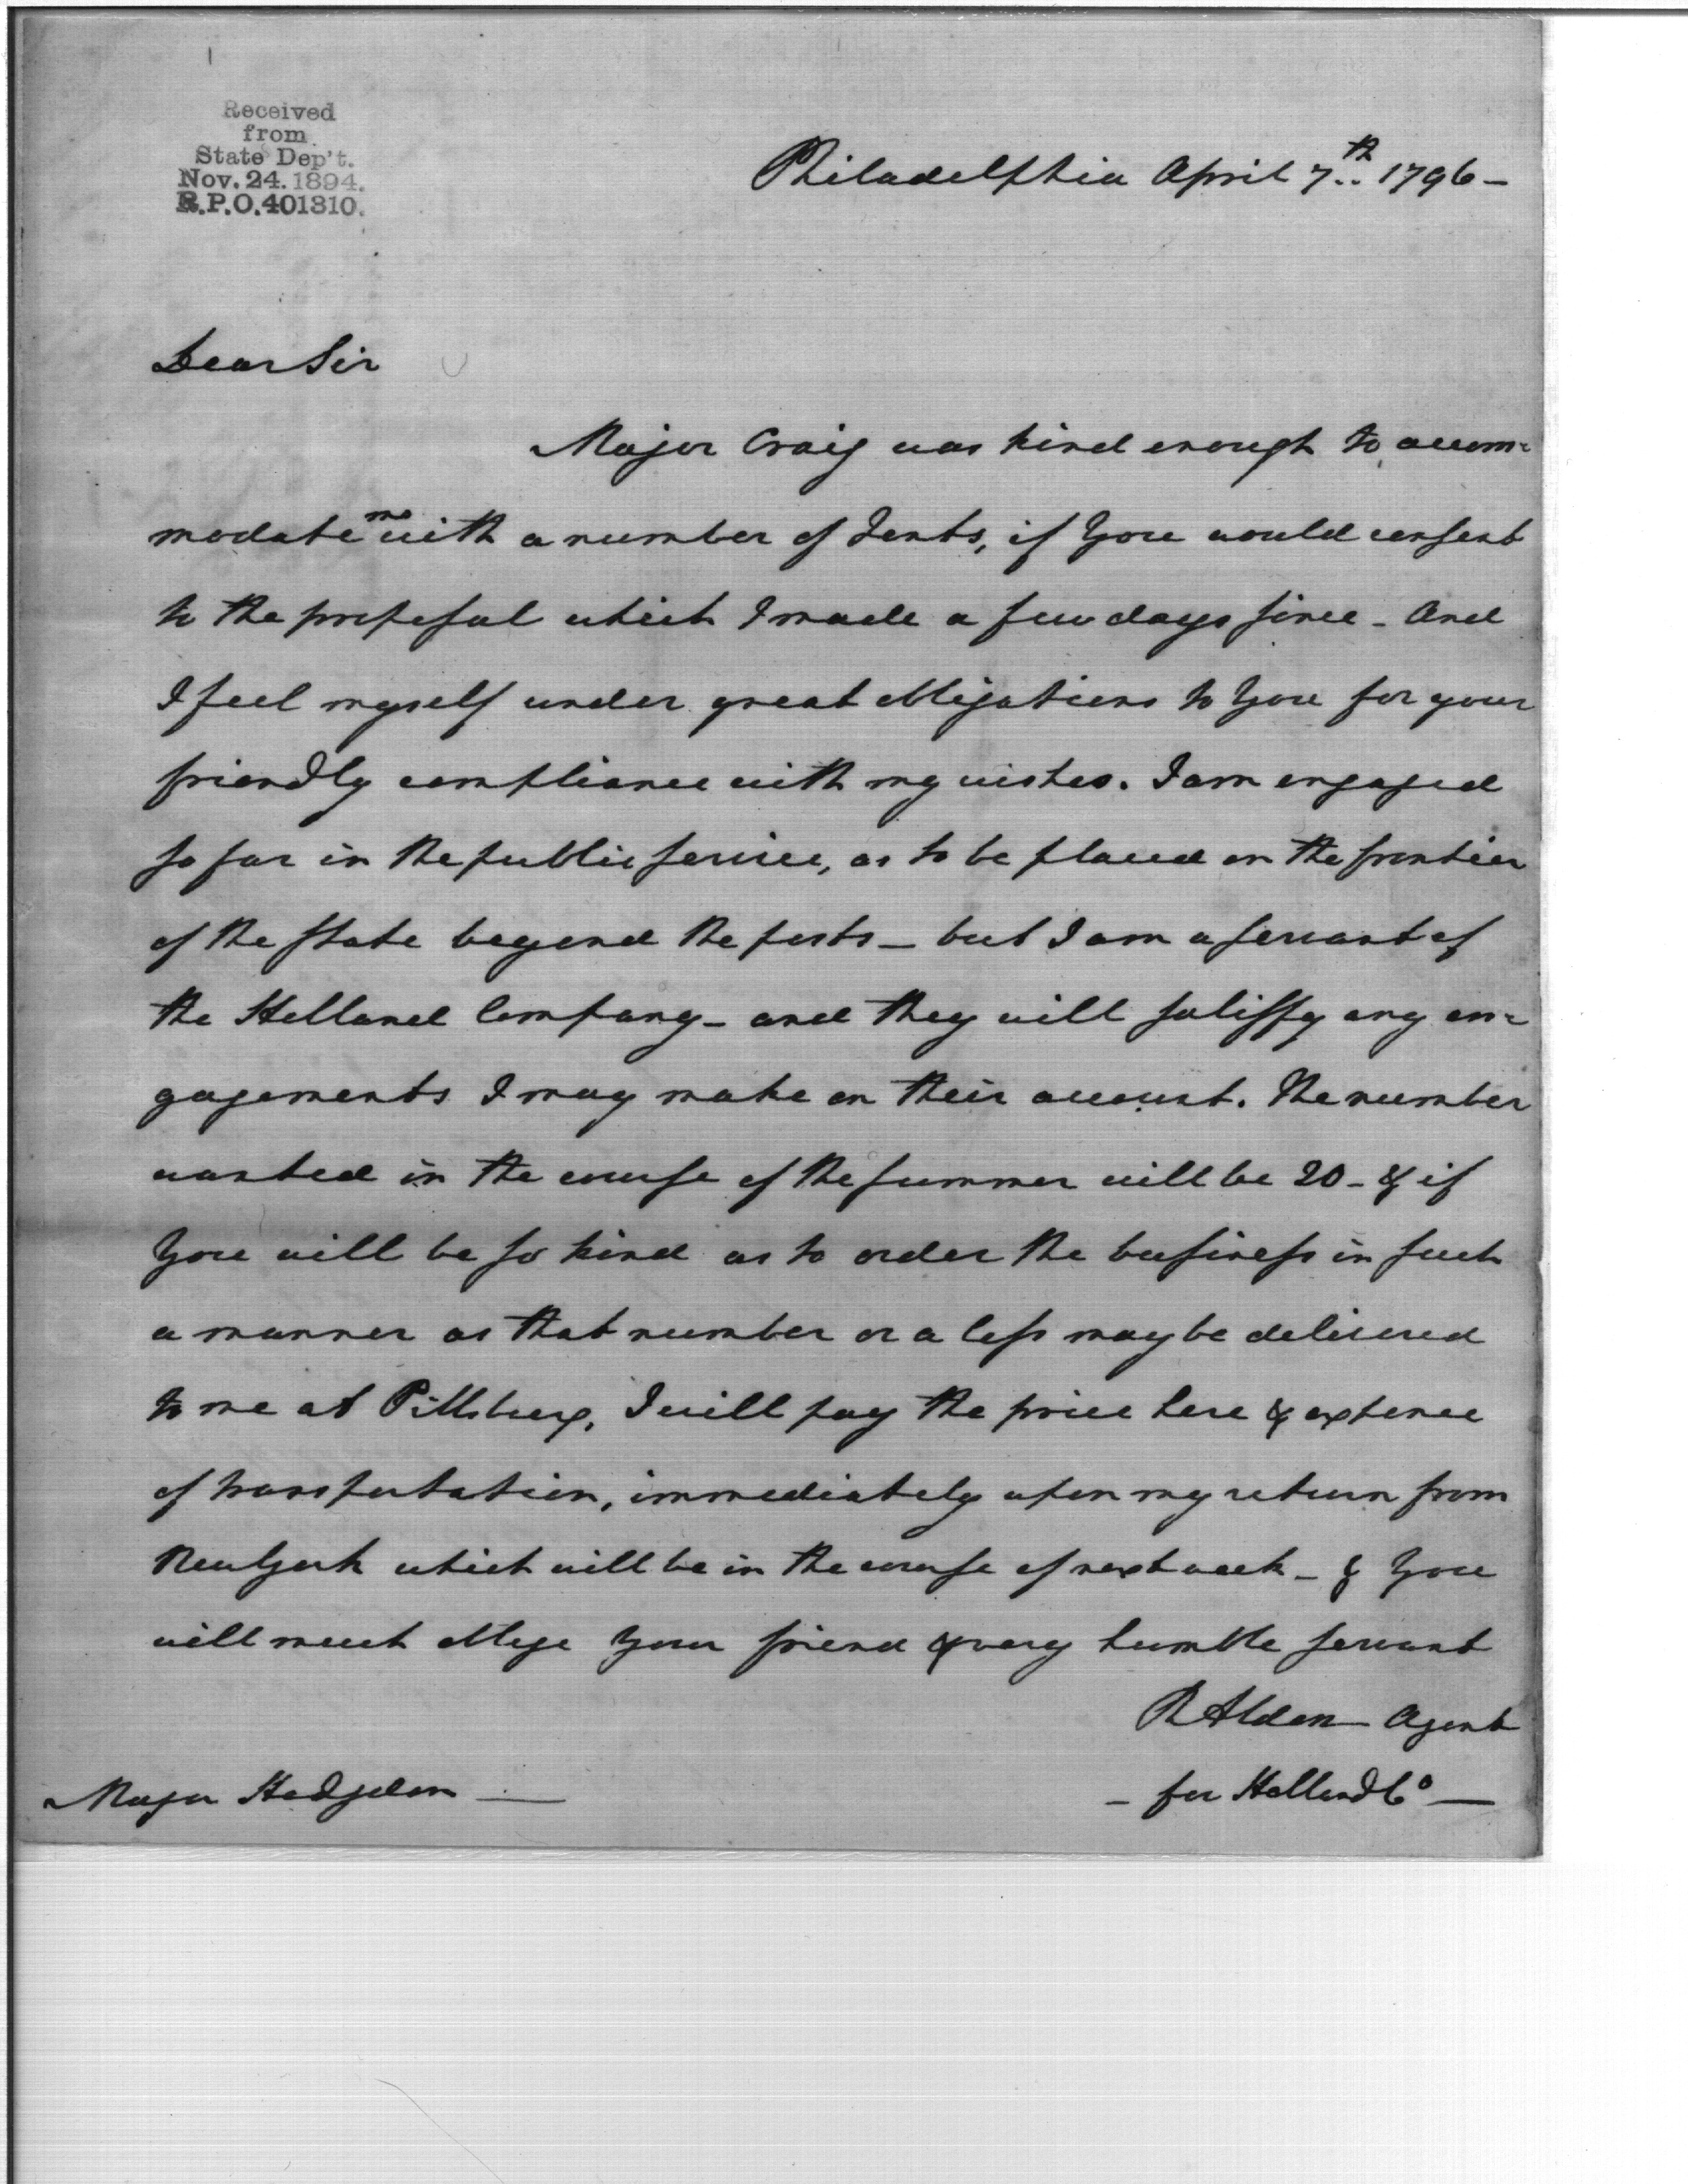 Received
from
State Dep't.
Nov. 24. 1894.
R.P.O. 401310.
Philadelphia April 7th 1796 –
Dear Sir
Major Craig was kind enough to accom=
modate me with a number of Tents, if You would consent
to the proposal which I made a few days since – And
I feel myself under great obligations to You for your
friendly compliance with my wishes. I am engaged
so far in the public service, as to be placed on the frontier
of the State beyond the posts – but I am a servant of
the Holland Company – and they will satisfy any en=
gagements I may make on their account. The number
wanted in the course of the summer will be 20 – & if
You will be so kind as to order the business in such
a manner as that number or a less may be delivered
to me at Pittsburg, I will pay the price here & expence
of transportation, immediately upon my return from
New York which will be in the course of next week – & You
will much oblige Your friend & very humble servant
R Alden – Agent
– for Holland Co –
Major Hodgdon –